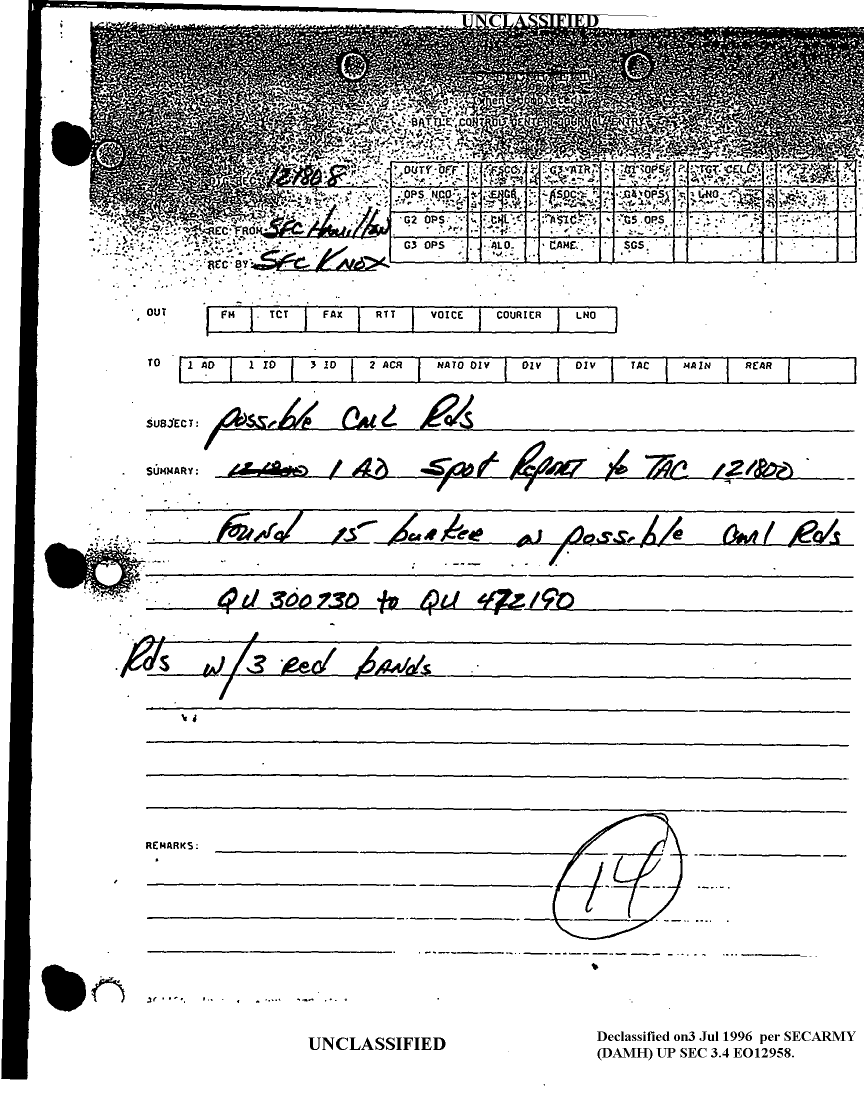 UNCLASSIFIED
BATTLE CONTROL CENTER JOURNAL ENTRY
121808
DUTY OFF FSCO G3 AIR G1 OPS TGT CELL
OPS NCO ENGR ASOC G4 OPS LNO
REC FROM SFC Hamilton G2 OPS CML ASIC G5 OPS
REC BY: SFC Knox G3 OPS ALO CAME SGS
OUT FM TCT FAX RTT VOICE COURIER LNO
TO 1 AD 1 ID 3 ID 2 ACR NATO DIV DIV DIV TAC MAIN REAR
SUBJECT: possible CML Rds
SUMMARY: 121800 1 AD Spot Report to TAC 121800
Found 15 bunker w possible CML Rds
QU 300730 to QU 472190
Rds w/3 red bands
REMARKS:
14
UNCLASSIFIED
Declassified on3 Jul 1996 per SECARMY
(DAMH) UP SEC 3.4 EO12958.